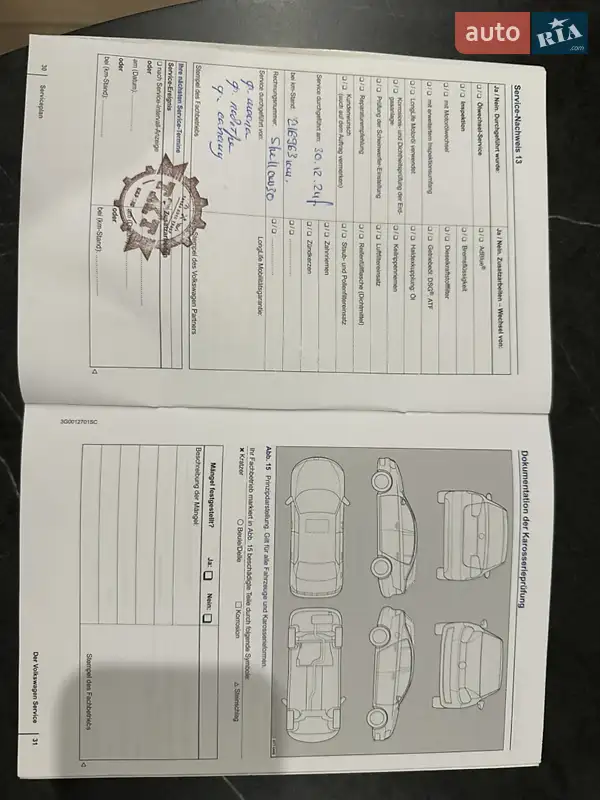 auto RIA.com
Service-Nachweis 13
Ja / Nein: Durchgeführt wurde:
Ja / Nein: Zusatzarbeiten – Wechsel von:
Ölwechsel-Service
AdBlue®
Inspektion
Bremsflüssigkeit
mit Motorölwechsel
Dieselkraftstofffilter
mit erweitertem Inspektionsumfang
Getriebeöl: DSG® ATF
LongLife Motoröl verwendet
Haldexkupplung: Öl
Korrosions- und Dichtheitsprüfung der Erdgasanlage
Keilrippenriemen
Prüfung der Scheinwerfer-Einstellung
Luftfiltereinsatz
Reparaturempfehlung
Reifenfüllflasche (Dichtmittel)
Kundenwunsch
(auch auf dem Auftrag vermerken)
Staub- und Pollenfiltereinsatz
Zahnriemen
Service durchgeführt am: 30.12.24
Zündkerzen
bei km-Stand:
Rechnungsnummer:
Service durchgeführt von:
LongLife Mobilitätsgarantie:
Stempel des Fachbetriebs
Stempel des Volkswagen Partners
Ihre nächsten Service-Termine
Service-Ereignis
nach Service-Intervall-Anzeige
oder
am (Datum):
oder
oder
bei (km-Stand):
bei (km-Stand):
30 Serviceplan
3G0012701SC
Dokumentation der Karosserieprüfung
Abb. 15 Prinzipdarstellung: Gilt für alle Fahrzeuge und Karosserieformen.
Ihr Fachbetrieb markiert in Abb. 15 beschädigte Teile durch folgende Symbole:
Kratzer
Beule/Delle
Korrosion
Steinschlag
Mängel festgestellt?
Ja:
Nein:
Beschreibung der Mängel:
Stempel des Fachbetriebs
Der Volkswagen Service 31